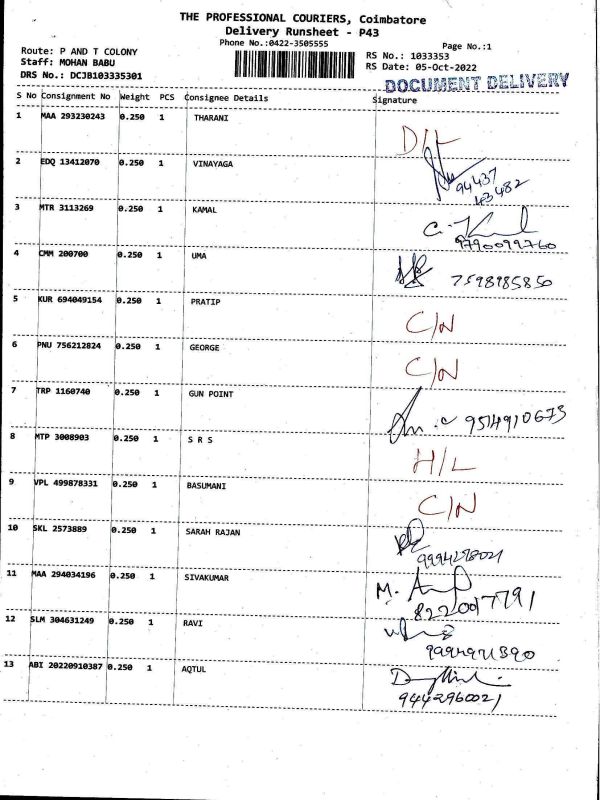 THE PROFESSIONAL COURIERS, Coimbatore
Delivery Runsheet - P43
Phone No.:0422-3505555
Page No.:1
Route: P AND T COLONY
RS No.: 1033353
Staff: MOHAN BABU
RS Date: 05-Oct-2022
DRS No.: DCJB103335301
DOCUMENT DELIVERY
S No Consignment No Weight PCS Consignee Details Signature
1 MAA 293230243 0.250 1 THARANI D/L
2 EDQ 13412070 0.250 1 VINAYAGA
94437
3 MTR 3113269 0.250 1 KAMAL
9790099760
4 CMM 200700 0.250 1 UMA 7598985850
5 KUR 694049154 0.250 1 PRATIP C/N
6 PNU 756212824 0.250 1 GEORGE C/N
7 TRP 1160740 0.250 1 GUN POINT 9514910673
8 MTP 3008903 0.250 1 S R S H/L
9 VPL 499878331 0.250 1 BASUMANI C/N
10 SKL 2573889 0.250 1 SARAH RAJAN
9994298021
11 MAA 294034196 0.250 1 SIVAKUMAR M.
8220017791
12 SLM 304631249 0.250 1 RAVI
13 ABI 20220910387 0.250 1 AQTUL
9442960021